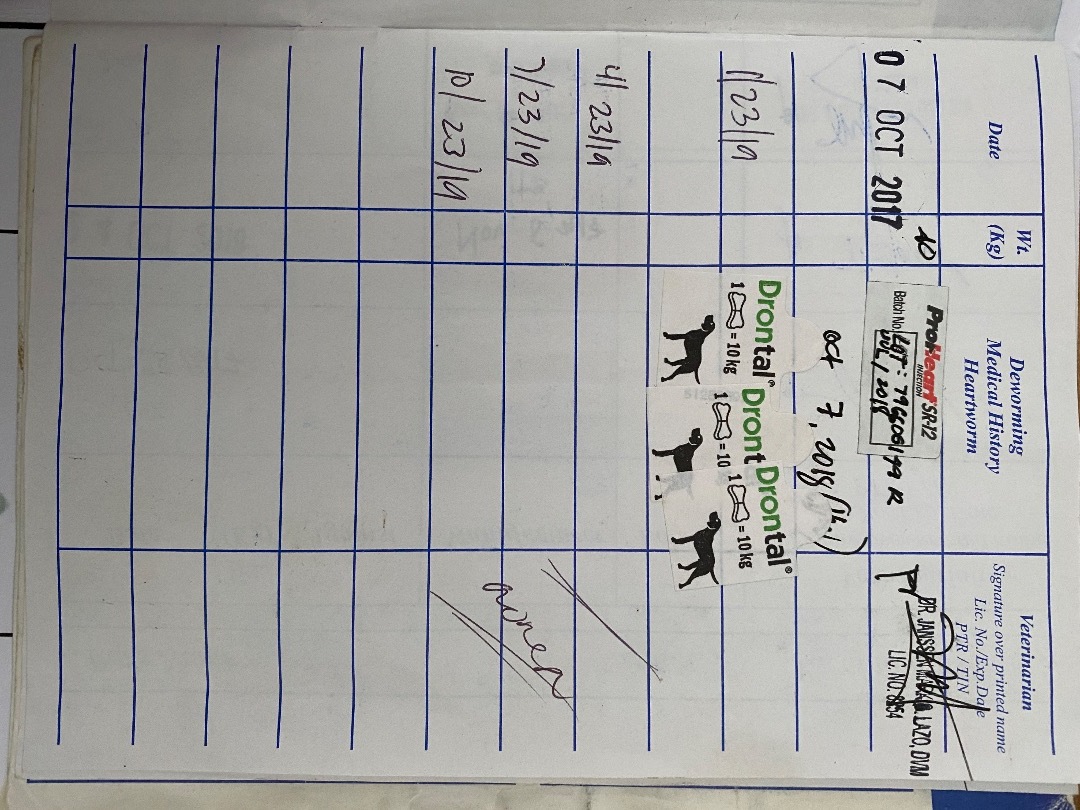 Date
Wt.
(Kg)
Deworming
Medical History
Heartworm
Veterinarian
Signature over printed name
Lic. No./Exp.Date
PTR / TIN
07 OCT 2017
10
ProHeart SR-12
INJECTION
Batch No.
LOT:
JUL, 2018
DR. JANSSEN
LAZO, DVM
LIC. NO. 8254
oct 7, 2018
1/23/19
Drontal®
1 = 10 kg
Dront
1 = 10
Drontal®
1 = 10 kg
4/23/19
7/23/19
10/23/19